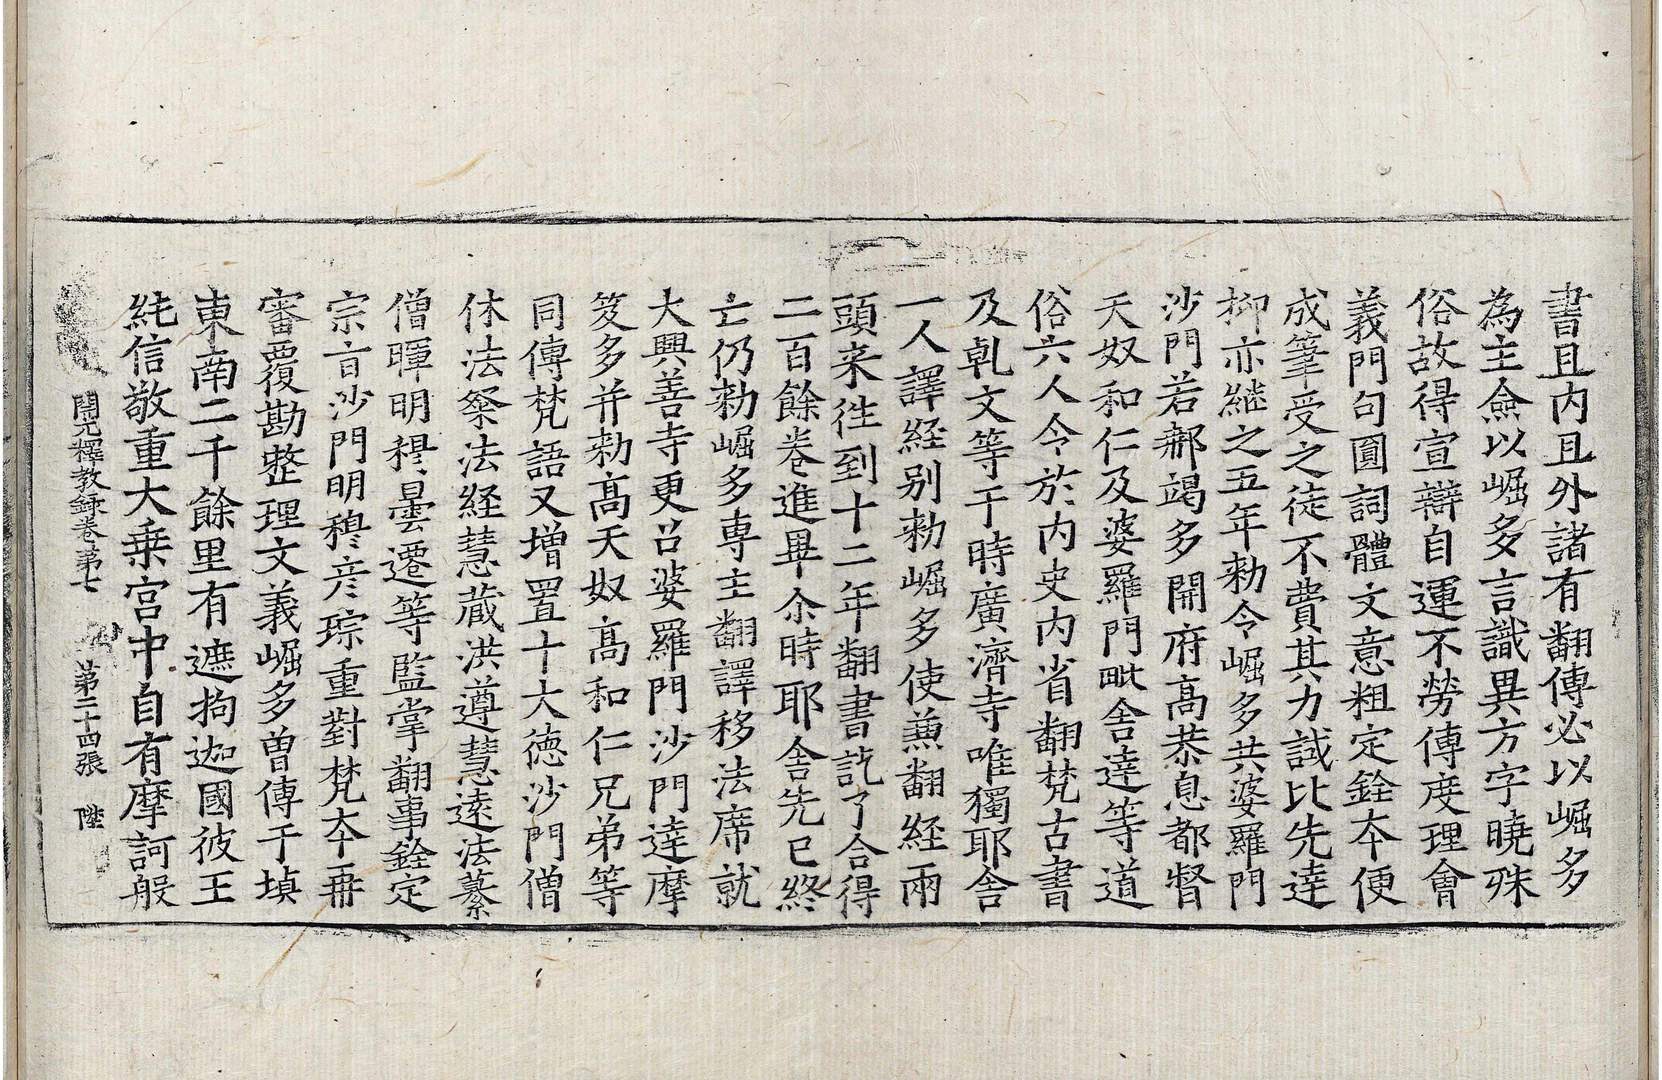 書且内且外諸有翻傳必以崛多
為主僉以崛多言識異方字曉殊
俗故得宣辯自運不勞傳度理會
義門句圓詞體文意粗定銓夲便
成筆受之徒不費其力試比先達
抑亦継之五年勑令崛多共婆羅門
沙門若那竭多開府高恭恭息都督
天奴和仁及婆羅門毗舍達等道
俗六人令於内史内省翻梵古書
及乹文等于時廣濟寺唯獨耶舍
一人譯経别勑崛多使兼翻経兩
頭来往到十二年翻書訖了合得
二百餘卷進畢尒時耶舍先已終
亡仍勑崛多専主翻譯移法席就
大興善寺更召婆羅門沙門達摩
笈多并勑髙天奴髙和仁兄弟等
同傳梵語又増置十大徳沙門僧
休法粲法経慧蔵洪遵慧遠法纂
僧暉明穆曇遷等監掌翻事銓定
宗旨沙門明穆彦琮重對梵夲再
審覆勘整理文義崛多曽傳于填
東南二千餘里有遮拘迦國彼王
純信敬重大乗宮中自有摩訶般
開元釋教録卷苐七 苐二十四張 陞